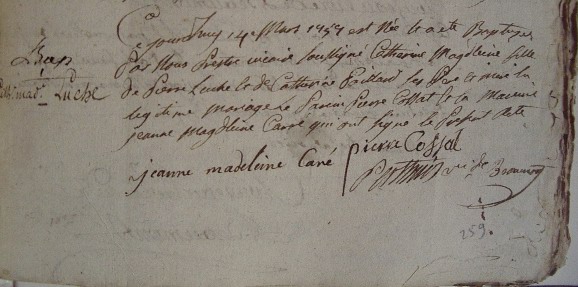 Bap
Cath. mad. Luche
Ce jourdhuy 14e Mars 1757 est Née et a ete Baptisee
Par Nous Pretre vicaire soussigné Catherine Magdleine fille
de Pierre Luche et de Catherine Paillard ses Pere et mere en
legitime mariage Le Parein Pierre Cossat et la Mareine
jeanne Magdleine Carré qui ont signe le Present acte
jeanne madeleine Caré pierre Cossal
vic. de
259.